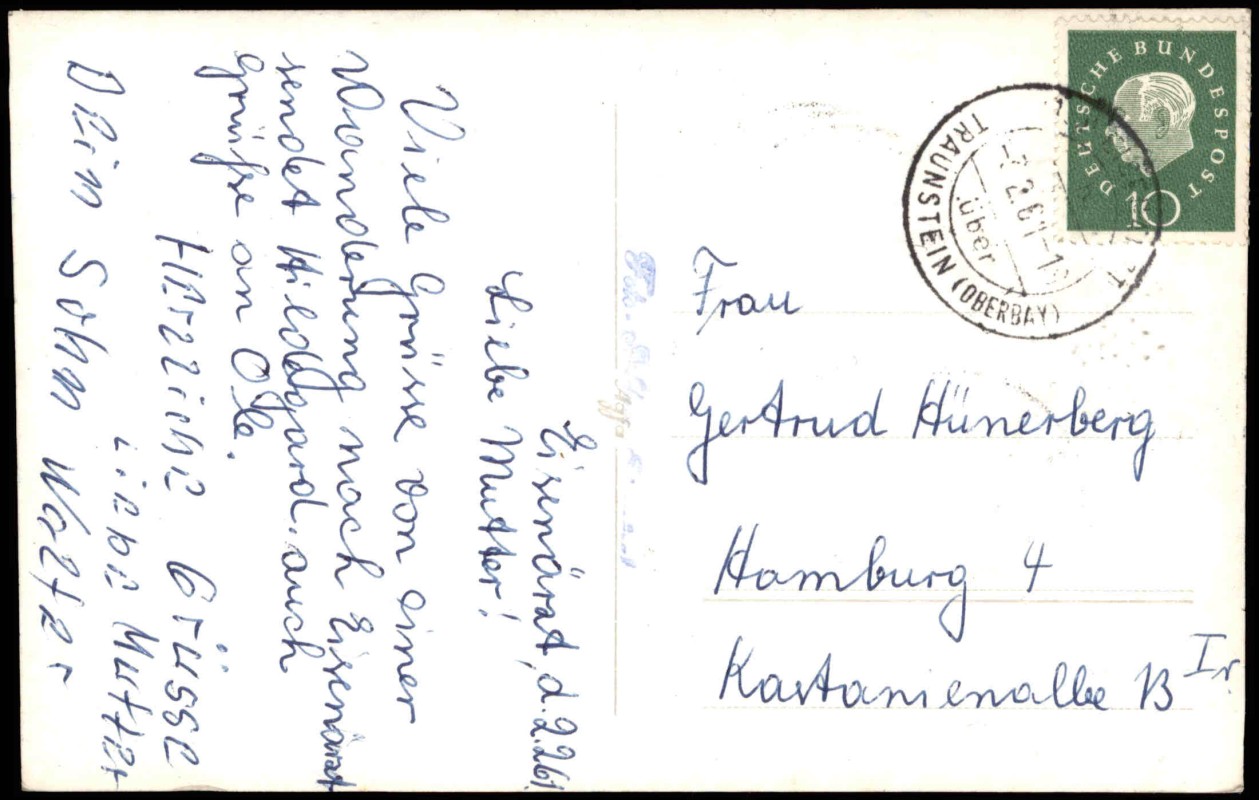 Eisenärat, d. 2.2.61.
Liebe Mutter!
Viele Grüsse von einer
Wanderung nach Eisenärat
sendet Hildegard. auch
Grüße an Ole.
Herzliche Grüsse
Liebe Mutter
Dein Sohn Walter
DEUTSCHE BUNDESPOST
10
TRAUNSTEIN (OBERBAY)
über
2.61-1
Frau
Gertrud Hünerberg
Hamburg 4
Kastanienallee 13 Ir.